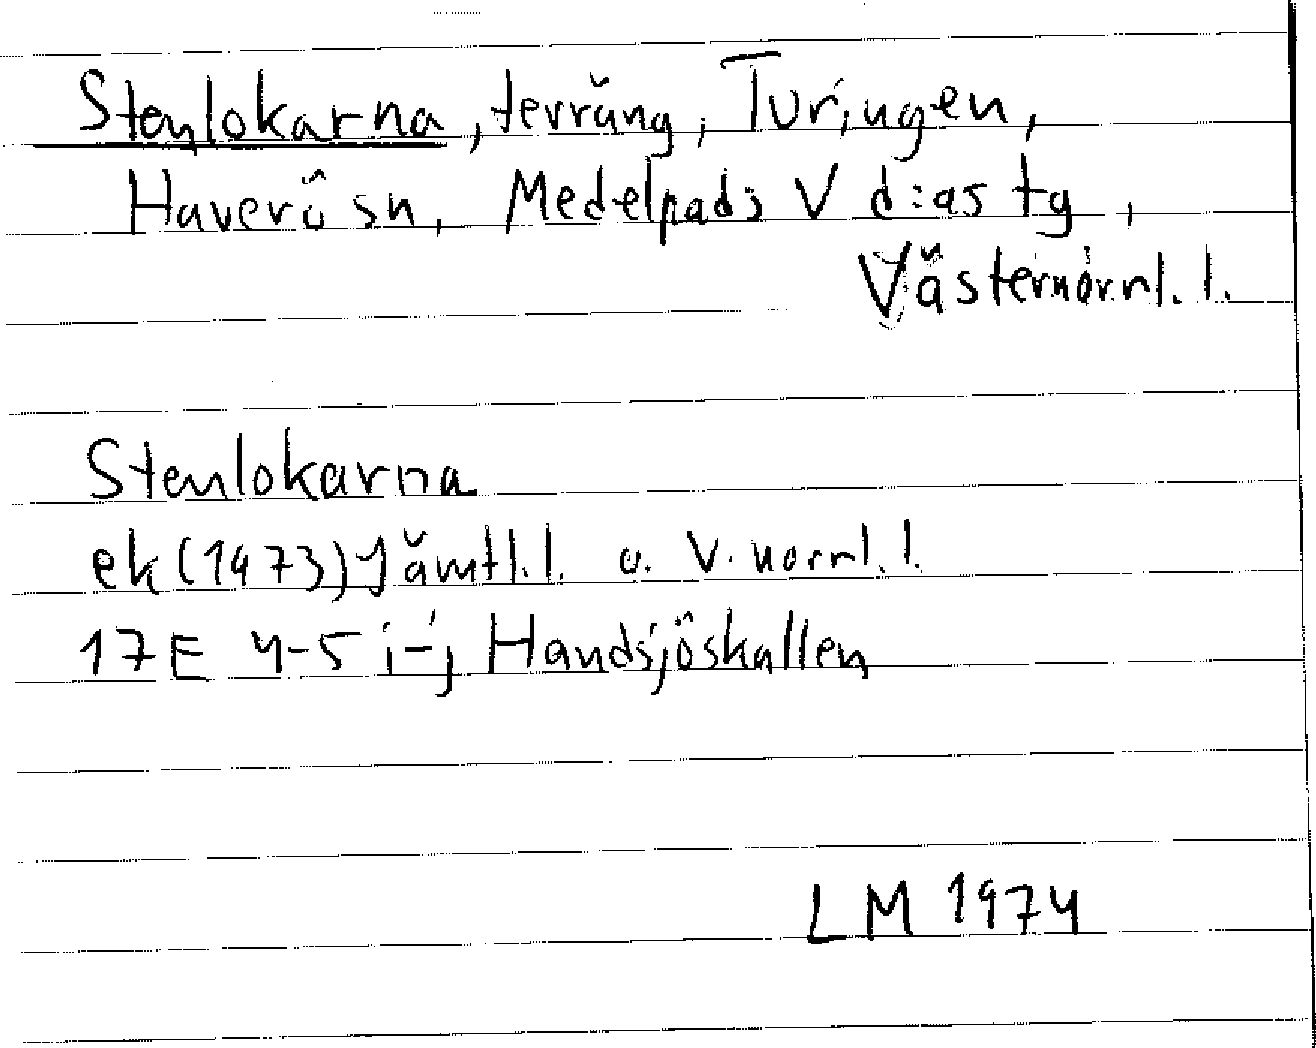 Stenlokarna, terräng, Turingen,
Haverö sn, Medelpads V d:as tg,
Västernorrl. l.
Stenlokarna
ek (1973) Jämtl. l. o. V. norrl. l.
17E 4-5 i-j Handsjöskallen
LM 1974